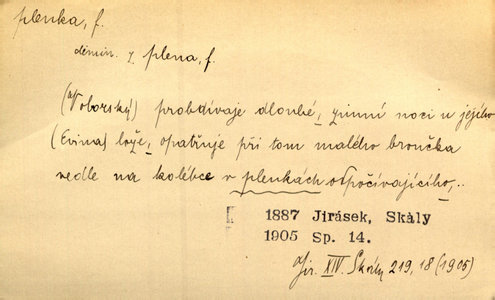 plenka, f.
demin. z plena, f.
(Voborský) probdívaje dlouhé, zimní noci u jejího
(Evina) lože, opatřuje při tom malého broučka
vedle na kolébce v plenkách otpočívajícího,..
1887 Jirásek, Skàly
1905 Sp. 14.
Jir. XIV. Skály 219, 18 (1905)